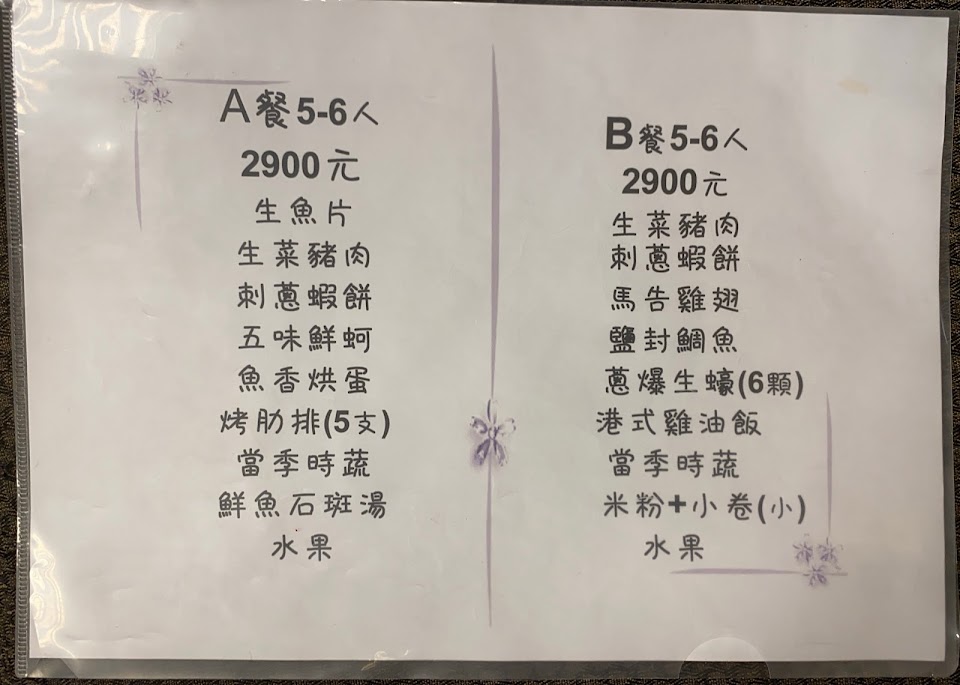 A餐5-6人
2900元
生魚片
生菜豬肉
刺蔥蝦餅
五味鮮蚵
魚香烘蛋
烤肋排(5支)
當季時蔬
鮮魚石斑湯
水果
B餐5-6人
2900元
生菜豬肉
刺蔥蝦餅
馬告雞翅
鹽封鯛魚
蔥爆生蠔(6顆)
港式雞油飯
當季時蔬
米粉+小卷(小)
水果